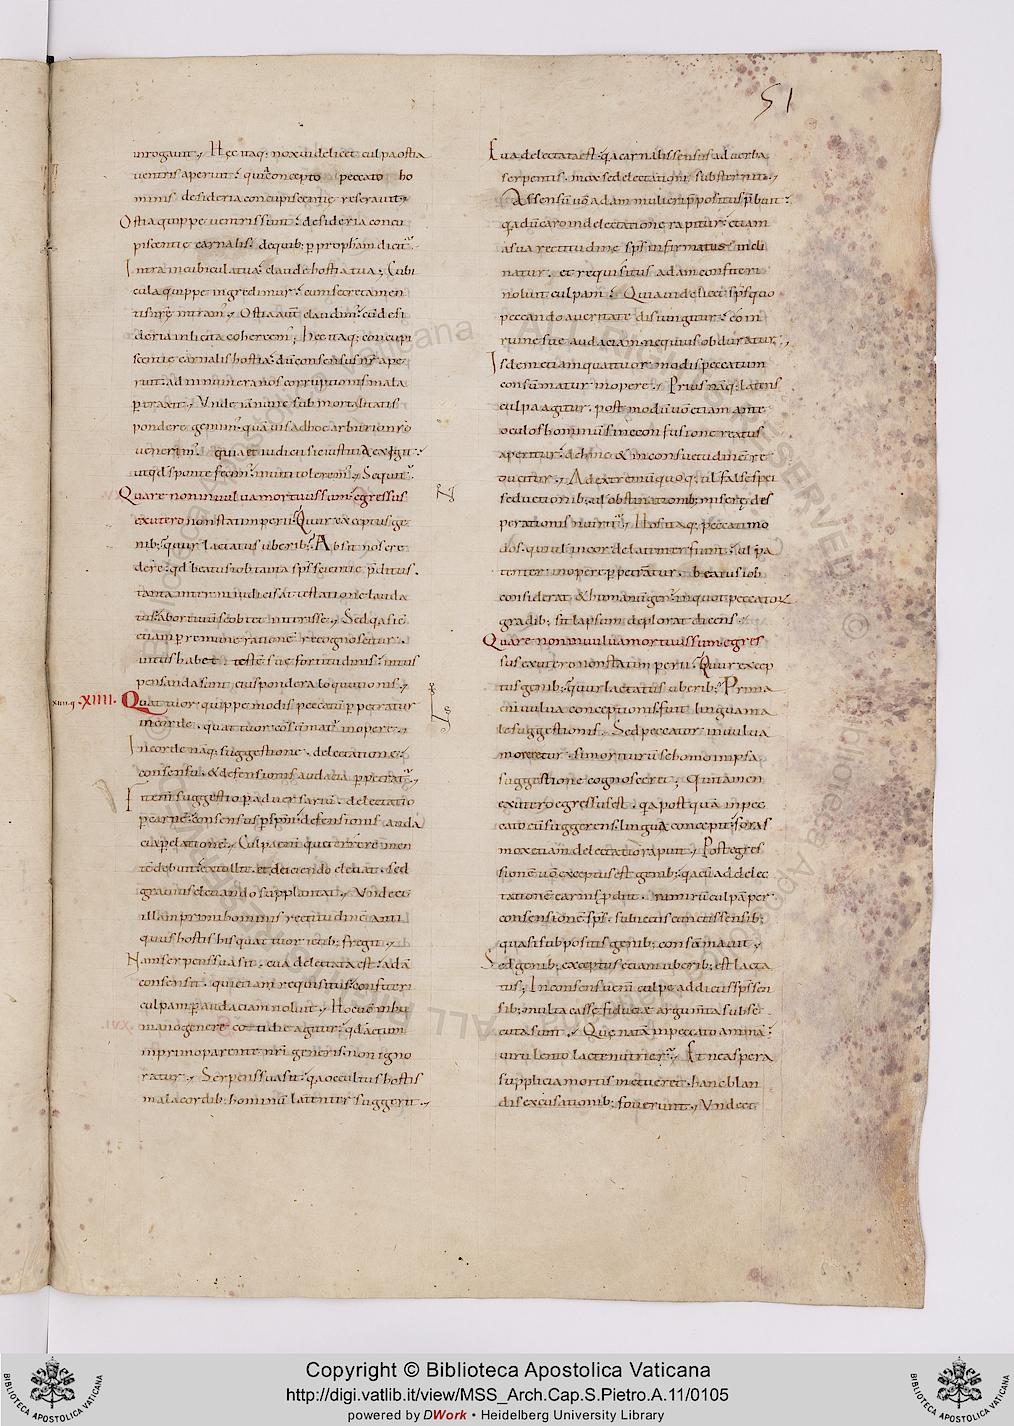 51
inrogauit, Hęc itaq; nox uidelicet culpa ostia
uentris aperuit; quia concepto peccato ho
minis desideria concupiscentię reserauit,
Ostia quippe uentris sunt; desideria concu
piscentię carnalis; de quib; p̱ prophām dicit̄.
Intra in cubicula tua; claude hostia tua; Cubi
cula quippe ingredimur; cum secreta men
tis nrę intram̄, Ostia aut̄ claudim̄; cū desi
deria inlicita cohercem̄; Hęc itaq; concupi
scentię carnalis hostia; dū consensus nr̄ ape
ruit; ad innumera nos corruptionis mala
p̱traxit, Vnde iā nunc sub mortalitatis
pondere gemim̄;
utqđ sponte fecim̄; inuiti tolerem̄, Sequit̄.
Quare non in uulua mortuus sum; egressus
ex utero non statim perii; Quur exceptus ge
nib; quur lactatus uberib; Absit nos cre
dere; qđ beatus iob tanta sps̄ scientię p̄ditus.
tanta interni iudicis attestatione lauda
tus; abortiuū se optet interisse, Sed qa sic
etiam p̱ remuneratione recognoscitur.
intus habet testē suę fortitudinis; intus
pensanda sunt eius pondera loquutionis,
.XIIII. Quattuor quippe modis peccatū p̱petratur
in corde. quattuor consūmat̄ in opere,
In corde naq; suggestione. delectatione;
consensu. & defensionis audacia p̱petrat̄,
Fit enī suggestio p̱ aduersariū. delectatio
p̱ carnē; consensus p̱ spm̄; defensionis auda
cia p̱ elationē, Culpa enī qui terrere men
tē debuit; extollit. et deiciendo eleuat. sed
grauius eleuando supplantat, Vnde et
illam primi hominis rectitudinē anti
quus hostis his quattuor ictib; fregit,
Nam serpens suasit. eua delectata est; adā
consensit. qui etiam requisitus; confiteri
culpam p̱ audaciam noluit, Hoc uō in hu
mano genere cotidie agitur; qđ actum
in primo parente nri generis. non igno
ratur, Serpens suasit; qa occultus hostis
mala cordib; hominū latenter suggerit,
Eua delectata est; qa carnalis sensus ad uerba
serpentis. mox se delectationi substernit,
Assensū uō adam mulieri p̄positus p̄buit;
qa dū caro in delectatione rapitur; etiam
a sua rectitudine sps̄ infirmatus incli
natur. et requisitus adam confiteri
noluit culpam; Quia uidelicet sps̄ quo
peccando a ueritate disiungitur; eo in
ruinę suę audaciam nequius obduratur;
Isdem etiam quattuor modis peccatum
consūmatur in opere, Prius naq; latens
culpa agitur. post modū uō etiam ante
oculos hominū sine confusione reatus
aperitur; dehinc & in consuetudinē re
Ad extremū quoq; ul falsę spei
seductionib; ul obstinationib; miserę des
perationis nutrit̄, Hos itaq; peccati mo
dos. qui ul in corde latenter fiunt; ul pa
tenter in opere p̱petrātur. beatus iob
considerat. & humanū gen; in quot peccatorū
gradib; sit lapsum deplorat dicens,
Quare non in uulua mortuus sum; egres
sus ex utero non statim perii; Quur excep
tus genib; quur lactatus uberib; Prima
eni uulua conceptionis fuit lingua ma
lę suggestionis, Sed peccator in uulua
moreretur. si moriturū se homo in ipsa
suggestione cognosceret; Qui tamen
ex utero egressus est. qa post quā in pec
cato eū suggerens lingua concepit; foras
mox etiam delectatio rapuit, Post egres
sionē uō exceptus est genib; qa cū ad delec
tationē carnis p̄diit. nimirū culpā per
consensionē sps̄. subiectis cunctis sensib;
quasi subpositis genib; consūmauit,
Sed genib; exceptus etiam uberib; est lacta
tus; In consensu eni culpę addicti sps̄ sen
sib; multa cassę fiducię argumta subse
cuta sunt, Quę natā in peccato animā;
uirulento lacte nutrier̄, Et ne aspera
supplicia mortis metueret. hanc blan
dis excusationib; fouerunt, Vnde et
ALL RIGHTS RESERVED
© Biblioteca Apostolica Vaticana
Copyright © Biblioteca Apostolica Vaticana
http://digi.vatlib.it/view/MSS_Arch.Cap.S.Pietro.A.11/0105
powered by DWork • Heidelberg University Library
BIBLIOTECA APOSTOLICA VATICANA
BIBLIOTECA APOSTOLICA VATICANA